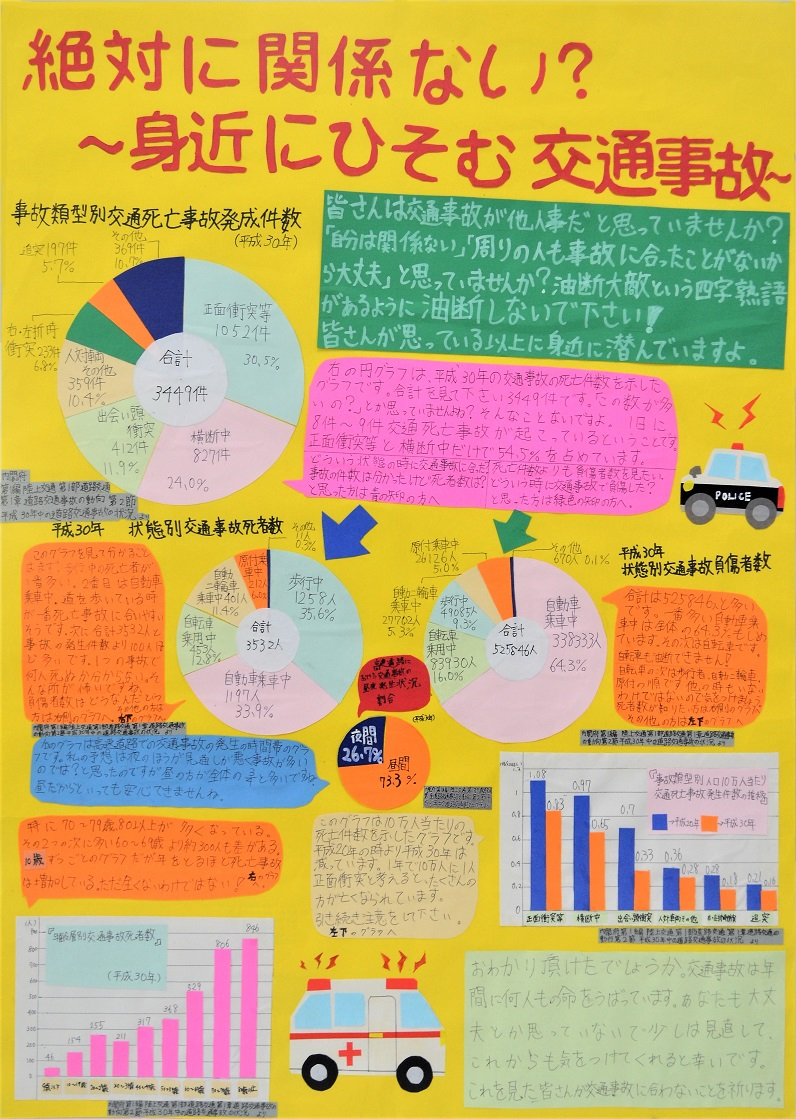 絶対に関係ない?
～身近にひそむ交通事故～
事故類型別交通死亡事故発成件数
(平成30年)
追突197件
5.7%
その他
369件
10.7%
右・左折時
衝突 233件
6.8%
人対車両
その他
359件
10.4%
出会い頭
衝突
412件
11.9%
横断中
827件
24.0%
正面衝突等
1052件
30.5%
合計
3449件
皆さんは交通事故が他人事だと思っていませんか?
「自分は関係ない」「周りの人も事故に合ったことがないか
ら大丈夫」と思っていませんか?油断大敵という四字熟語
があるように油断しないで下さい!
皆さんが思っている以上に身近に潜んでいますよ。
右の円グラフは、平成30年の交通事故の死亡件数を示した
グラフです。合計を見て下さい3449件です。この数が多
いの?」とか思っていませんね?そんなことないですよ。1日に
8件～9件交通死亡事故が起こっているということです。
正面衝突等と横断中だけで54.5%を占めています。
どういう状態の時に交通事故に合った?
事故の件数は分かったけど死者数は?
と思った方は青の矢印の方へ
死亡件数よりも負傷者数を見たい。
どういう時に交通事故で負傷した?
と思った方は緑色の矢印の方へ。
POLICE
内閣府
第1編 陸上交通 第1部道路交通
第1章 道路交通事故の動向 第2節
平成30年中の道路交通事故の状況 より
平成30年 状態別交通事故死者数
その他
11人
0.3%
原付乗
車中
212人
6.0%
自動
二輪乗車
乗車中401人
11.4%
自転車
乗用中
453人
12.8%
自動車乗車中
1197人
33.9%
歩行中
1258人
35.6%
合計
3532人
このグラフを見て分かること
はまず歩行中の死亡者が
一番多い。2番目は自動車
乗車中。道を歩いている時が
一番死亡事故に合いやすい
そうです。次に合計3532人と
事故の発生件数より100人ほ
ど多いです。1つの事故で
何人死ぬか分からない。そ
平成30年
状態別交通事故負傷者数
その他
670人 0.1%
原付乗車中
26126人
5.0%
自動二輪車
乗車中
27702人
5.3%
歩行中
49085人
9.3%
自転車
乗用中
83930人
16.0%
自動車
乗車中
338333人
64.3%
合計
525846人
合計は525846人と多い
です。一番多い自動車乗
車中は全体の64.3%もしめ
ています。その次は自転車です。
自転車も油断できません!
自転車の次は歩行者、自動二輪車、
原付の順です。他の時もいな
いわけではないので気を付けましょう。
その他の方は左下のグラフへ
夜間
26.7%
昼間
73.3%
右のグラフは高速道路での交通事故の発生の時間帯のグラ
フです。私の予想は夜のほうが見通しが悪く事故が多い
のでは?と思ったのですが昼の方が全体の3/4と多いですね。
昼だからといっても安心できませんね。
特に70～79歳、80以上が多くなっている。
その2つの次に多い60～69歳より約300人も差がある。
10歳ずつごとのグラフだが年をとるほど死亡事故
は増加している。ただ若くないわけではない! 右のグラフへ
このグラフは10万人当たりの
死亡件数を示したグラフです。
平成20年の時より平成30年は
減っています。1年で10万人に1人
正面衝突と考えるとたくさんの
方が亡くなられています。
引き続き注意をして下さい。
左下のグラフへ
『事故類型別人口10万人当たり
交通死亡事故発生件数の推移』
→平成20年 →平成30年
1.2
1
0.8
0.6
0.4
0.2
0
1.08 0.83 0.97 0.65 0.7 0.33 0.36 0.28 0.28 0.18 0.21 0.16
正面衝突等 横断中 出会い頭衝突 人対車両その他 右・左折時衝突 追突
『年齢層別交通事故死者数』
(平成30年)
(人)
900
800
700
600
500
400
300
200
100
0
46 154 255 211 317 368 529 806 846
おわかり頂けたでしょうか。交通事故は年
間に何人もの命をうばっています。あなたも大丈
夫とか思っていないで少しは見直して、
これからも気をつけてくれると幸いです。
これを見た皆さんが交通事故に合わないことを祈ります。